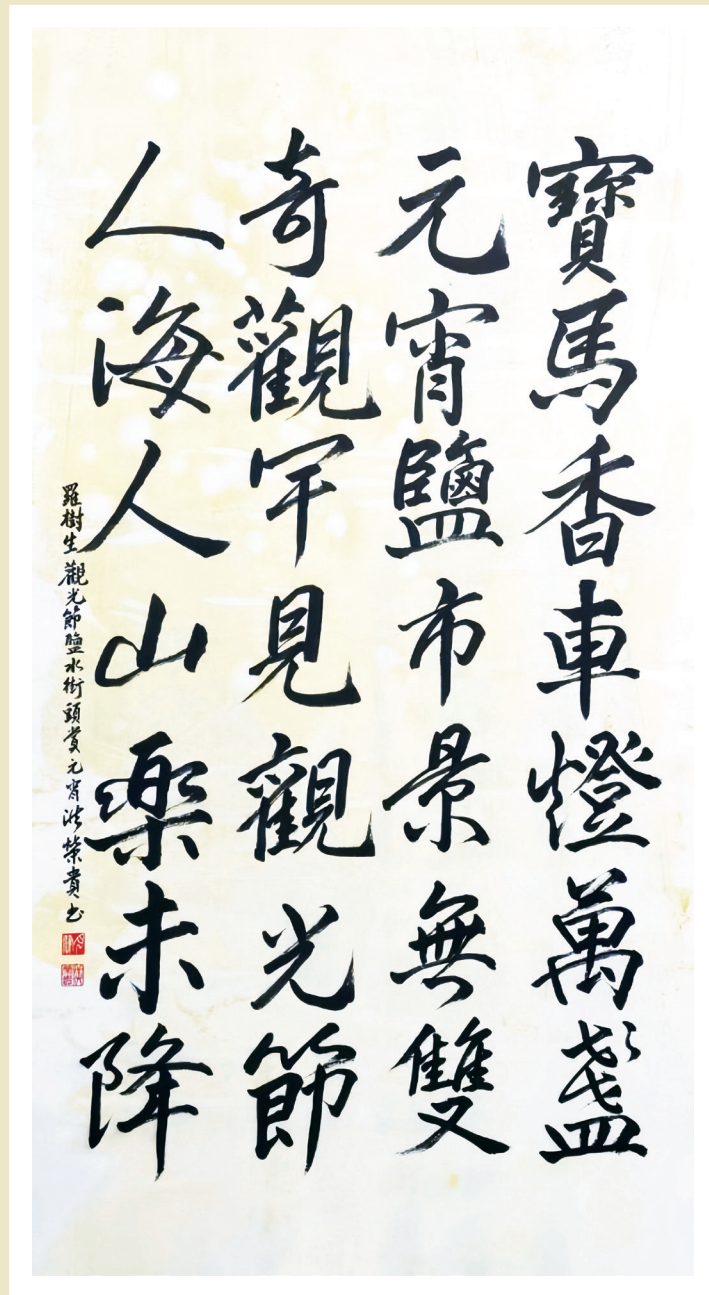 寶馬香車燈萬盞
元宵鹽市景無雙
奇觀罕見觀光節
人海人山樂未降
羅樹生觀光節鹽水街頭賞元宵 榮貴書